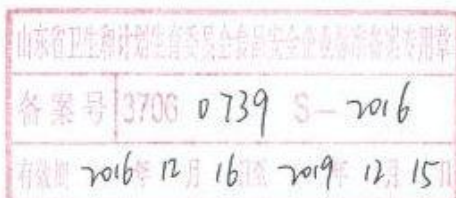 山东省卫生和计划生育委员会食品安全企业标准备案专用章
备案号 3706 0739 S-2016
有效期 2016年12月16日至2019年12月15日